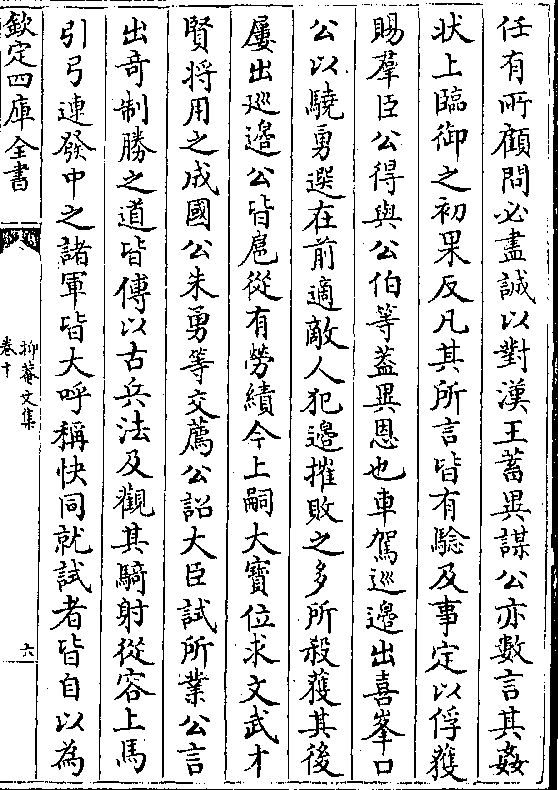 任有所顧問必盡誠以對漢王蓄異謀公亦數言其姦
狀上臨御之初果反凡其所言皆有驗及事定以俘獲
賜羣臣公得與公伯等葢異恩也車駕巡邉出喜峯口
公以驍勇選在前適敵人犯邉摧敗之多所殺獲其後
屢出廵邉公皆扈從有勞績今上嗣大寶位求文武才
賢将用之成國公朱勇等交薦公詔大臣試所業公言
出竒制勝之道皆傅以古兵法及觀其騎射從容上馬
引弓連發中之諸軍皆大呼稱快同就試者皆自以為
欽定四庫全書
抑菴文集
卷十
六